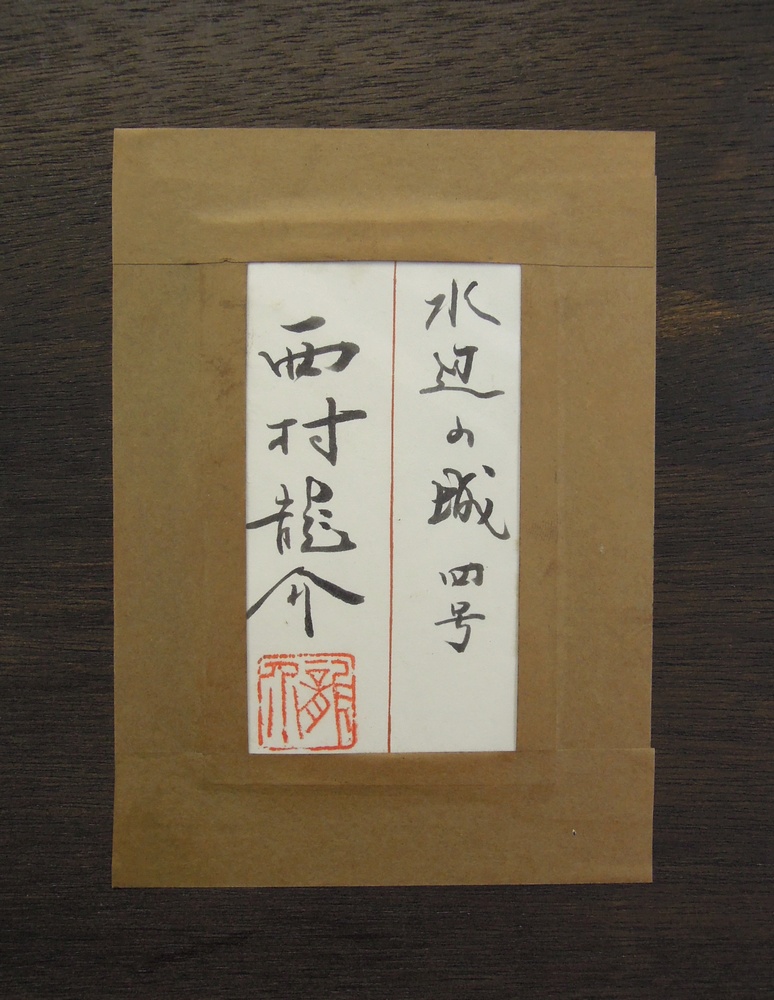 水辺の城 四号
西村龍介
龍介